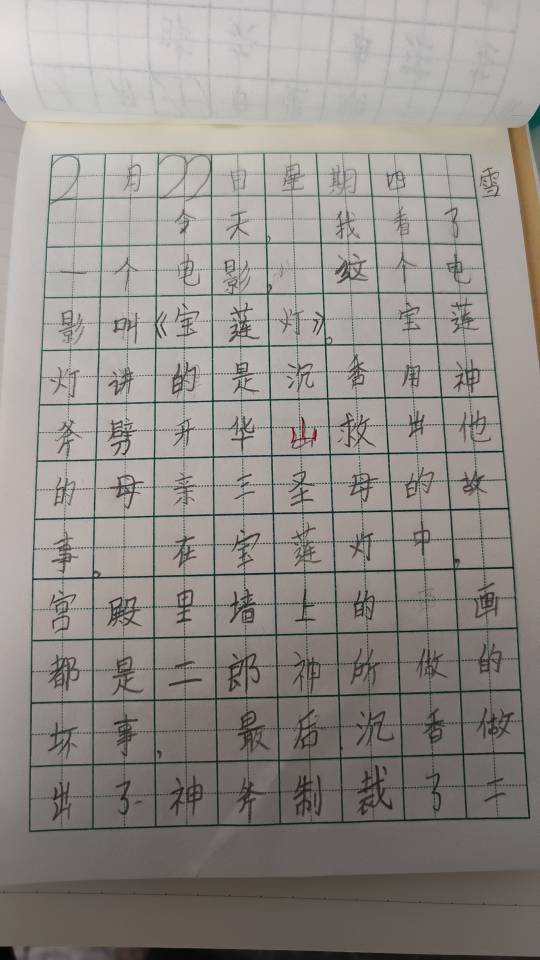 2月22日星期四 雪
今天，我看了
一个电影，这个电
影叫《宝莲灯》。宝莲
灯讲的是沉香用神
斧劈开华山救出他
的母亲三圣母的故
事。在宝莲灯中，
宫殿里墙上的画
都是二郎神所做的
坏事，最后，沉香做
出了神斧制裁了二